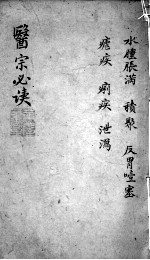 水腫脹滿 積聚 反胃噎塞
瘧疾 痢疾 泄瀉
醫宗必读